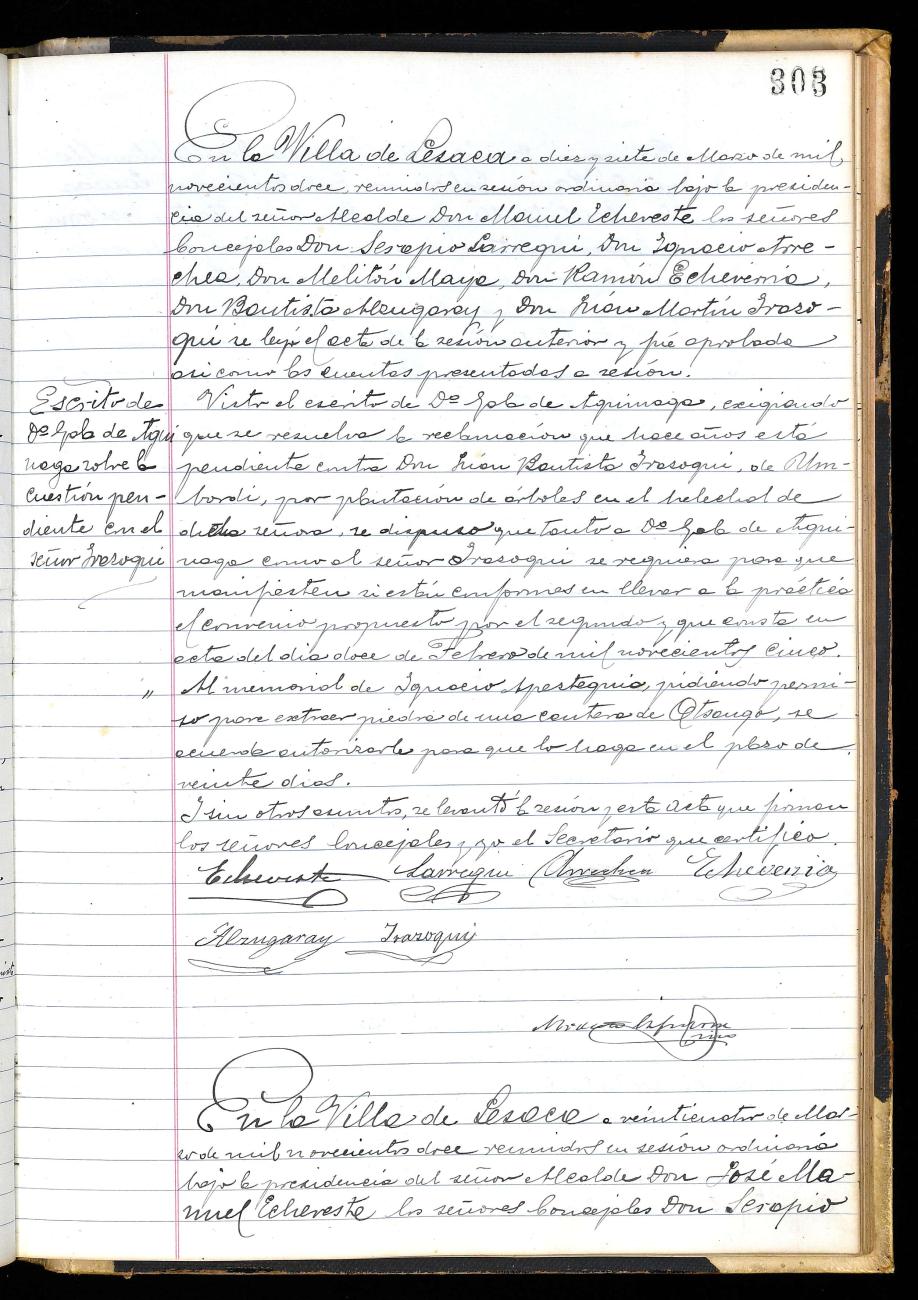 303
En la Villa de Lesaca a diez y siete de Marzo de mil
novecientos doce, reunidos en sesión ordinaria bajo la presiden-
cia del señor Alcalde Don Manuel Echereste los señores
Concejales Don Serapio Larregui, Don Ignacio Arre-
chea, Don Melitón Maya, Don Ramón Echeverria,
Don Bautista Alzugaray y Don Juan Martín Irazo-
qui se leyó el acta de la sesión anterior y fué aprobada
asi como las cuentas presentadas a sesión.
Escrito de
Dª Gabª de Agui
naga sobre la
cuestión pen-
diente con el
señor Irazoqui
Visto el escrito de Dª Gabª de Aguinaga, exigiendo
que se resuelva la reclamación que hace años está
pendiente contra Don Juan Bautista Irazoqui, de Um-
bordi, por plantación de árboles en el helechal de
dicha señora, se dispuso que tanto a Dª Gabª de Agui-
naga como al señor Irazoqui se requiera para que
manifiesten si están conformes en llevar a la práctica
el convenio propuesto por el segundo y que consta en
acta del dia doce de Febrero de mil novecientos cinco.
" Al memorial de Ignacio Apesteguia, pidiendo permi-
so para extraer piedra de una cantera de Otsango, se
acuerda autorizarle para que lo haga en el plazo de
veinte dias.
I sin otros asuntos, se levantó la sesión y esta acta que firman
los señores Concejales y yo el Secretario que certifico.
Echereste Larregui Arrechea Echeverria
Alzugaray Irazoqui
En la Villa de Lesaca a veinticuatro de Mar-
zo de mil novecientos doce reunidos en sesión ordinaria
bajo la presidencia del señor Alcalde Don José Ma-
nuel Echereste los señores Concejales Don Serapio